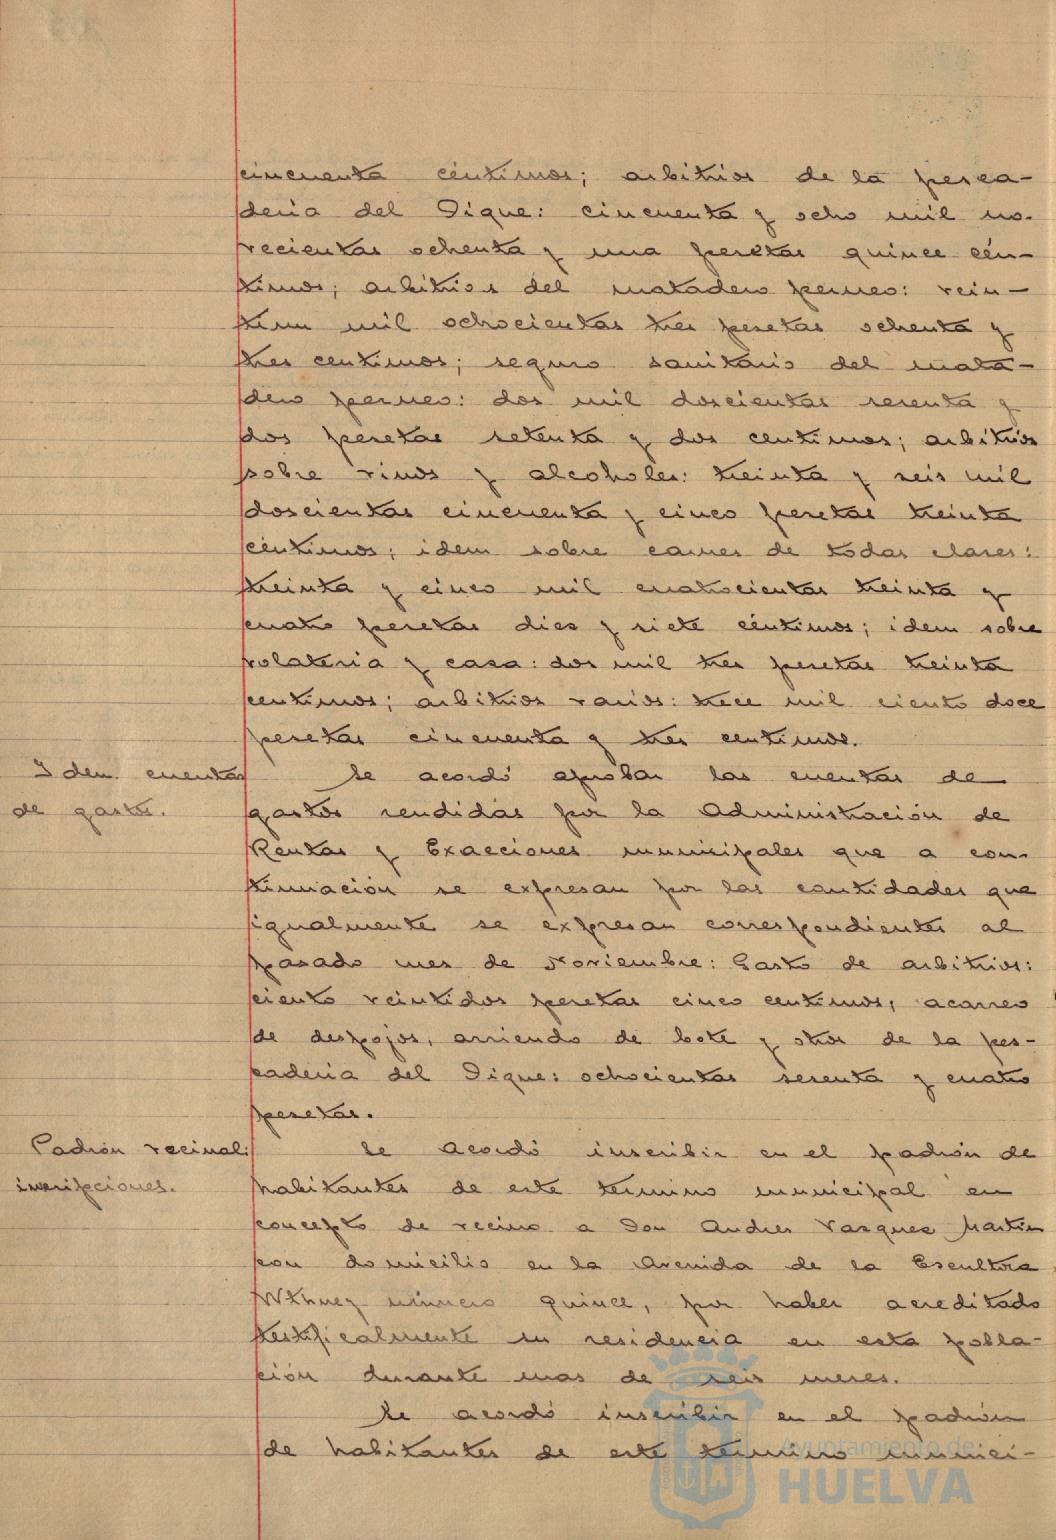 cincuenta céntimos; arbitrios de la pesca-
deria del Dique: cincuenta y ocho mil no-
vecientas ochenta y una pesetas quince cén-
timos; arbitrios del matadero porcuno: vein-
tiun mil ochocientas tres pesetas ochenta y
tres centimos; seguro sanitario del mata-
dero dos mil doscientas sesenta y
dos pesetas setenta y dos centimos; arbitrios
sobre vinos y alcoholes: treinta y seis mil
doscientas cincuenta y cinco pesetas treinta
céntimos; idem sobre carnes de todas clases:
treinta y cinco mil cuatrocientas treinta y
cuatro pesetas dies y siete céntimos; idem sobre
volateria y casa: dos mil tres pesetas treinta
centimos; arbitrios varios: trece mil ciento doce
pesetas cincuenta y tres centimos.
Idem cuentas
de gastos.
Se acordó aprobar las cuentas de
gastos rendidas por la Administración de
Rentas y Exacciones municipales que a con-
tinuación se expresan por las cantidades que
igualmente se expresan correspondientes al
pasado mes de Noviembre: Gasto de arbitrios:
ciento veintidos pesetas cinco centimos; acarreo
de despojos, arriendo de bote y otros de la pes-
caderia del Dique: ochocientas sesenta y cuatro
pesetas.
Padrón vecinal:
inscripciones.
Se acordó inscribir en el padrón de
habitantes de este termino municipal en
concepto de vecino a Don Andres Vasquez Martin
con domicilio en la Avenida de la Escultora
Withney número quince, por haber acreditado
testificalmente su residencia en esta pobla-
ción durante mas de seis meses.
Se acordó inscribir en el padrón
de habitantes de este termino munici-
Ayuntamiento de
HUELVA